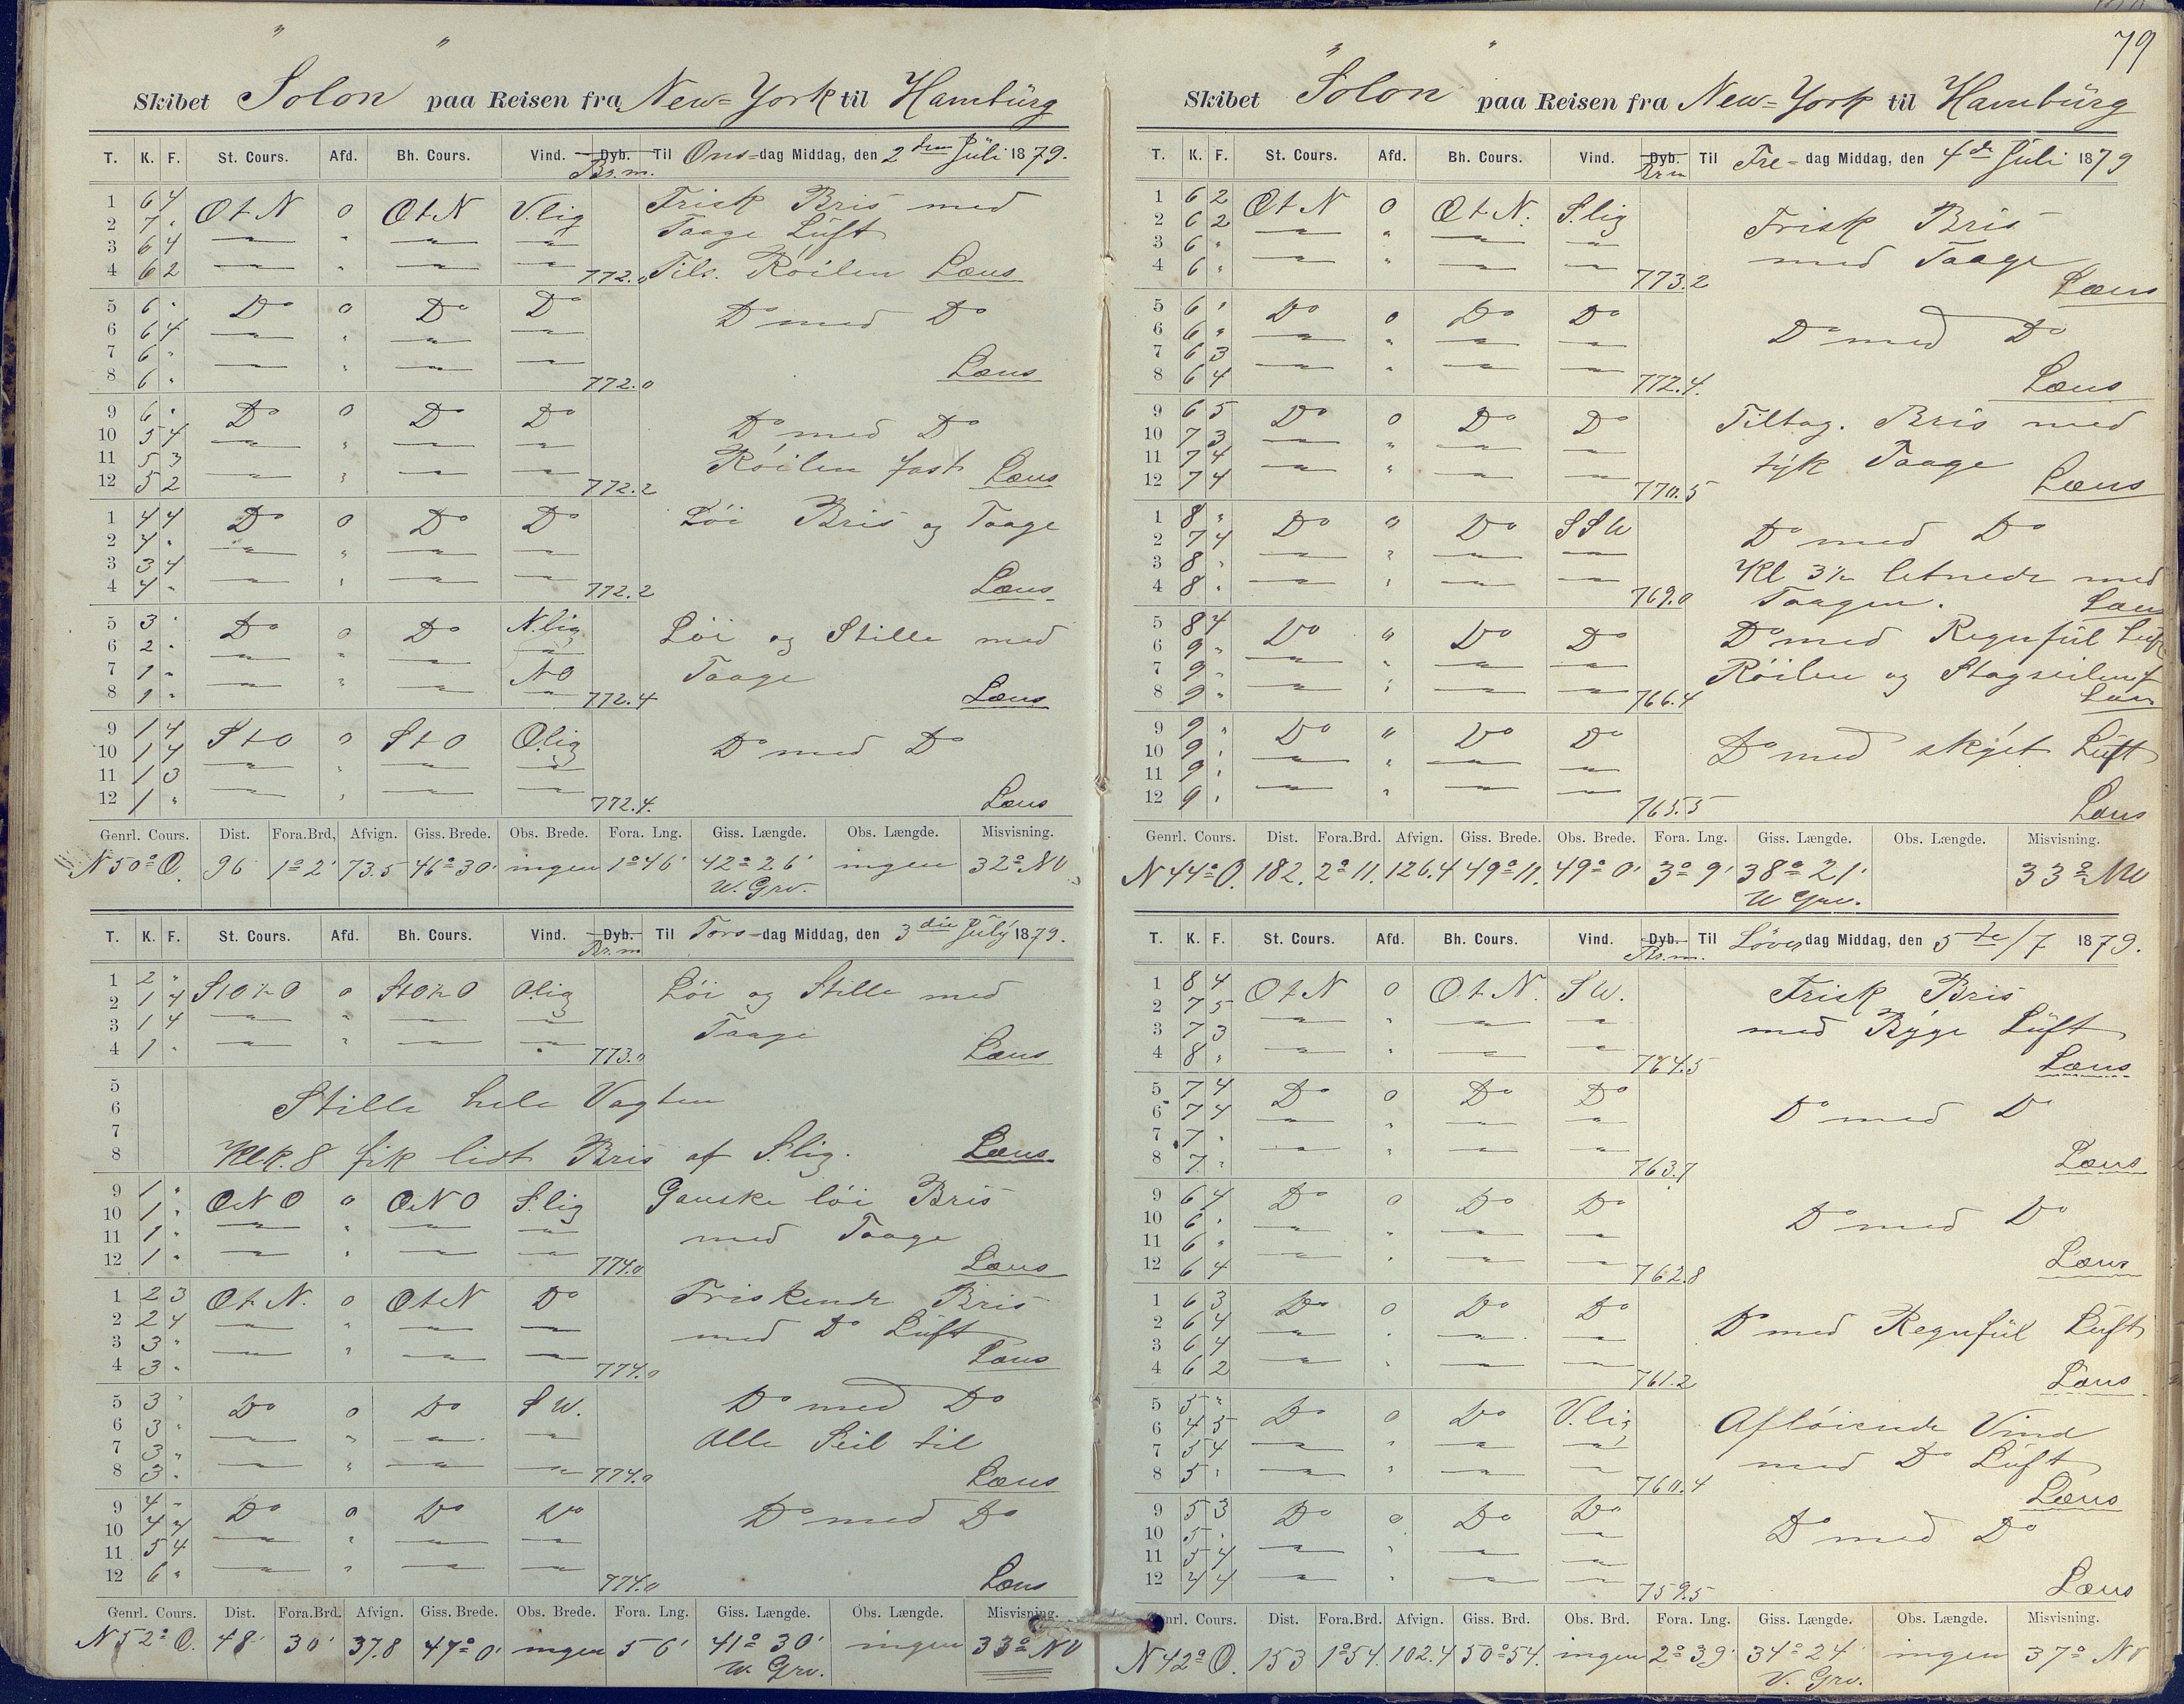 Skibet "Solon" paa Reisen fra New-York til Hamburg
T. K. F. St. Cours. Afd. Bh. Cours. Vind. Dyb. Br.m. Til Ons-dag Middag, den 2den Juli 1879.
1 6 4 O t N 0 O t N V.lig Frisk Bris med
2 7 " — " — — Taage Luft
3 6 4 — " — —
4 6 2 — " — — 772.0 Tils. Röilen Læns
5 6 " Do 0 Do Do Do med Do
6 6 4 — " — —
7 6 " — " — —
8 6 " 772.0 Læns
9 6 " Do 0 Do Do Do med Do
10 5 4 — " — —
11 5 3 — " — — Röilen fast Læns
12 5 2 772.2
1 4 4 Do 0 Do Do Löi Bris og Taage
2 4 " — " — —
3 3 4 — " — —
4 4 " 772.2 Læns
5 3 " Do 0 Do N.lig Löi og Stille med
6 2 " — " — —
7 1 " — " — NO Taage
8 1 " — 772.4 Læns
9 1 4 S t O 0 S t O O.lig Do med Do
10 1 4 — " — —
11 1 3 — " — —
12 1 " 772.4. Læns
Genrl. Cours. Dist. Fora.Brd, Afvign. Giss. Brede. Obs. Brede. Fora. Lng. Giss. Længde. Obs. Længde. Misvisning.
N 50° O. 96 1° 2' 73.5 46° 30' ingen 1° 46' 42° 26' W. Grv. ingen 32° NV
T. K. F. St. Cours. Afd. Bh. Cours. Vind. Dyb. Br.m Til Tors-dag Middag, den 3die July 1879.
1 2 " StO½O 0 StO½O O.lig Löi og Stille med
2 1 4 — " — —
3 1 4 — " — — Taage
4 1 " 773.0 Læns
5
6 Stille hele Vagten
7
8 Klk. 8 fik lidt Bris af S.lig. Læns
9 1 " ONO 0 ONO S.lig Ganske löi Bris
10 1 " — " — —
11 1 " — " — — med Taage
12 1 " 774.0 Læns
1 2 3 O t N. 0 O t N Do Friskende Bris
2 2 4 — " — — med Do Luft
3 3 " — " — —
4 3 " 774.0 Læns
5 3 " Do 0 Do S W. Do med Do
6 3 " — " — — Alle Seil til
7 3 " — " — —
8 3 " 774.0 Læns
9 4 " Do 0 Do Do Do med Do
10 4 4 — " — —
11 5 4 — " — —
12 6 " 774.0 Læns
Genrl. Cours. Dist. Fora.Brd. Afvign. Giss. Brede. Obs. Brede. Fora. Lng. Giss. Længde. Obs. Længde. Misvisning.
N 52° O. 48' 30' 37.8 47° 0' ingen 56' 41° 30' W. Grv. ingen 33° NV
79
Skibet "Solon" paa Reisen fra New-York til Hamburg
T. K. F. St. Cours. Afd. Bh. Cours. Vind. Dyb. Br.m Til Fre-dag Middag, den 4de Juli 1879
1 6 2 O t N 0 O t N. S.lig Frisk Bris
2 6 2 — " — —
3 6 " — " — — med Taage
4 6 " 773.2 Læns
5 6 " Do 0 Do Do Do med Do
6 6 " — " — —
7 6 3 — " — —
8 6 4 772.4. Læns
9 6 5 Do 0 Do Do Tiltag. Bris med
10 7 3 — " — —
11 7 4 — " — — tyk Taage
12 7 4 770.5 Læns
1 8 " Do 0 Do S S W Do med Do
2 7 4 — " — —
3 8 " — " — — Kl 3½ letnede med
4 8 " 769.0 Taagen. Læns
5 8 4 Do " Do Do Do med Regnful Luft
6 9 " — " — —
7 9 " — " — — Röilen og Stagseilene f
8 9 " 766.4 Læns
9 9 " Do " Do Do Do med skyet Luft
10 9 " — " — —
11 9 " — " — —
12 9 " 765.5 Læns
Genrl. Cours. Dist. Fora.Brd. Afvign. Giss. Brede. Obs. Brede. Fora. Lng. Giss. Længde. Obs. Længde. Misvisning.
N 44° O. 182. 2° 11. 126.4 49° 11. 49° 0' 3° 9' 38° 21' W Grv. 33° NV
T. K. F. St. Cours. Afd. Bh. Cours. Vind. Dyb. Br.m. Til Löverdag Middag, den 5te/7 1879.
1 8 4 O t N 0 O t N. S W. Frisk Bris
2 7 5 — " — —
3 7 3 — " — — med Byge Luft
4 8 " 764.5 Læns
5 7 4 Do 0 Do Do Do med Do
6 7 4 — " — —
7 7 " — " — —
8 7 " 763.7 Læns
9 6 4 Do 0 Do Do Do med Do
10 6 " — " — —
11 6 " — " — —
12 6 4 762.8 Læns
1 6 3 Do 0 Do Do Do med Regnful Luft
2 6 4 — " — —
3 6 4 — " — —
4 6 2 761.2 Læns
5 5 " Do 0 Do V.lig Aflöiende Vind
6 4 5 — " — —
7 5 4 — " — — med Do Luft
8 5 " 760.4 Læns
9 5 3 Do 0 Do Do Do med Do
10 5 " — " — —
11 5 4 — " — —
12 4 4 759.5 Læns
Genrl. Cours. Dist. Fora.Brd. Afvign. Giss. Brd. Obs. Brd. Fora. Lng. Giss. Længde. Obs. Længde. Misvisning.
N 42° O. 153 1° 54. 102.4 50° 54. ingen 2° 39' 34° 24 V. Grv. ingen 37° NV